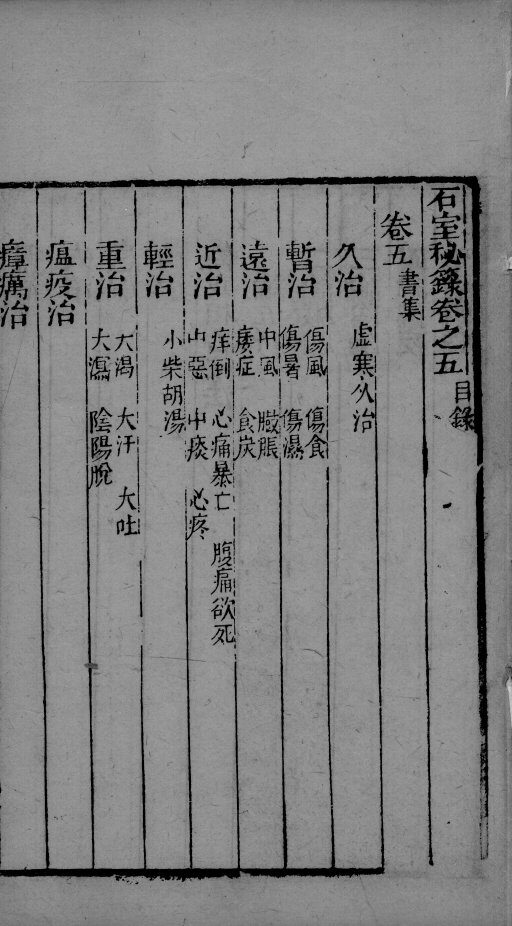 石室秘籙卷之五 目錄
卷五 書集
久治
虛寒久治
暫治
傷風 傷食
傷暑 傷濕
遠治
中風 臌脹
痿症 食炭
近治
痒倒 心痛暴亡 腹痛欲死
中惡 中痰 心疼
輕治
小柴胡湯
重治
大渴 大汗 大吐
大瀉 陰陽脫
瘟疫治
瘴癘治